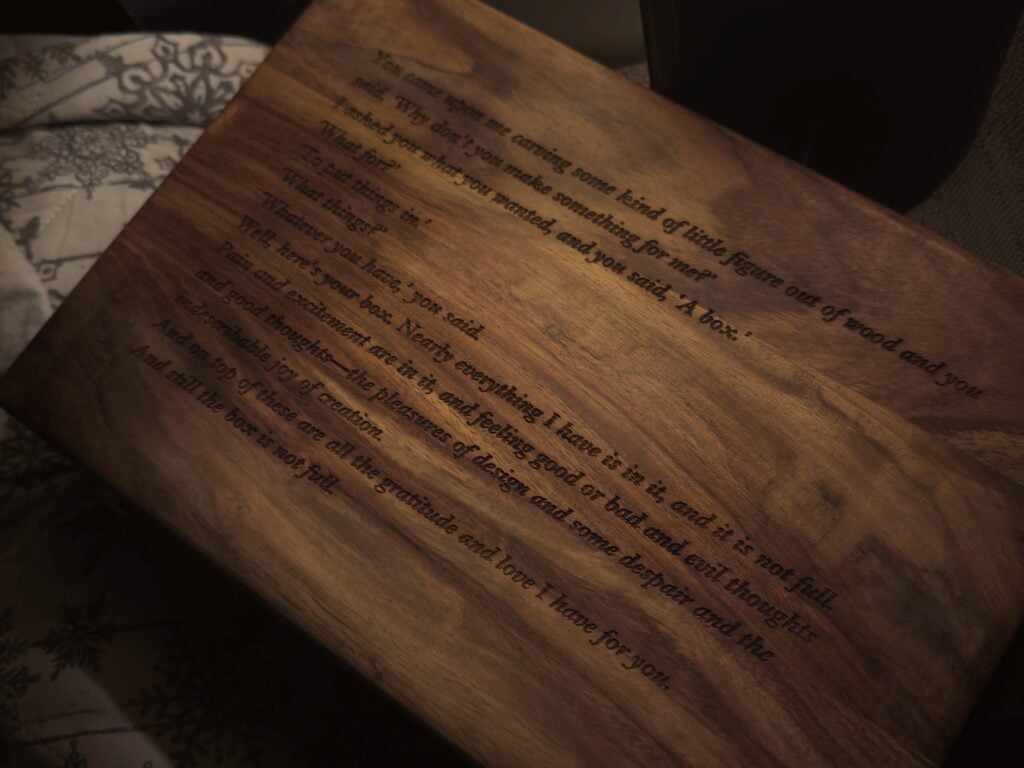 You came upon me carving some kind of little figure out of wood and you
said, 'Why don't you make something for me?'
I asked you what you wanted, and you said, 'A box.'
'What for?'
'To put things in.'
'What things?'
'Whatever you have,' you said.
Well, here's your box. Nearly everything I have is in it, and it is not full.
Pain and excitement are in it, and feeling good or bad and evil thoughts
and good thoughts—the pleasures of design and some despair and the
indescribable joy of creation.
And on top of these are all the gratitude and love I have for you.
And still the box is not full.